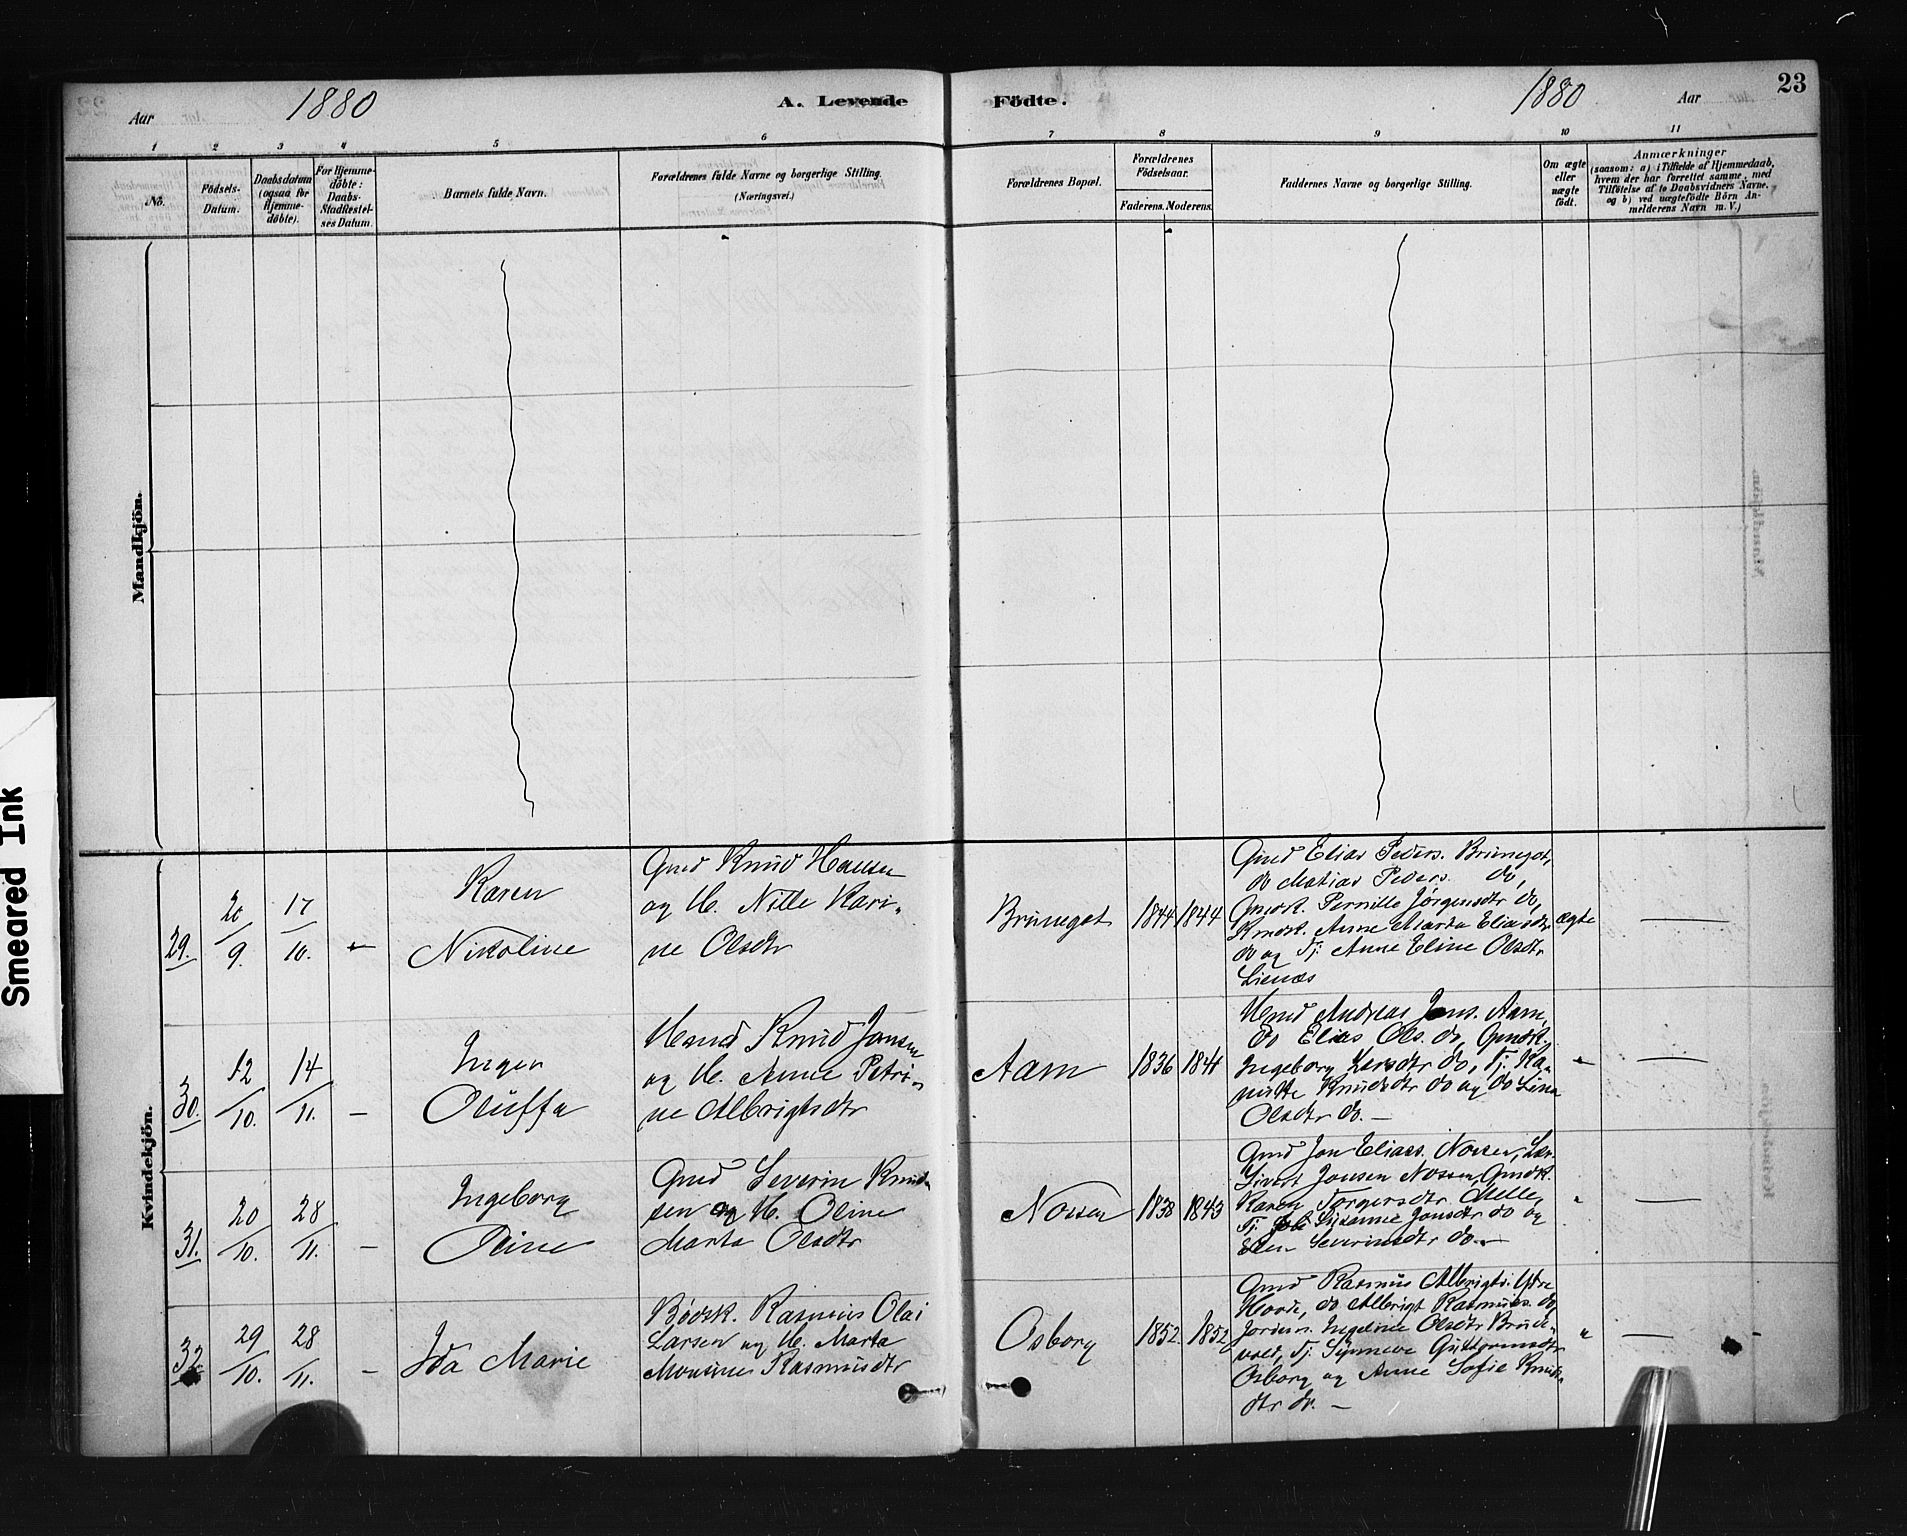 Aar 1880 A. Levende
Födte. 1880 Aar 23
1 2 3 4 5 6
7 8 9 10 11
No.
Födsels-
Datum.
Daabsdatum
(ogsaa for
Hjemme-
döbte).
For Hjemme-
döbte:
Daabs-
Stadfæstel-
ses Datum.
Barnets fulde Navn.
Forældrenes fulde Navne og borgerlige Stilling.
(Næringsvei.)
Forældrenes Bopæl.
Forældrenes
Födselsaar.
Faderens. Moderens.
Faddernes Navne og borgerlige Stilling.
Om ægte
eller
uægte
födt.
Anmærkninger
(saasom: a) i Tilfælde af Hjemmedaab,
hvem der har forrettet samme, med
Tilföielse af to Daabsvidners Navne,
og b) ved uægtefödte Börn An-
melderens Navn m. V.)
Mandkjön.
Kvindekjön.
29.
20/9.
17/10.
Karen
Nikoline
Gmd Knud Hansen
og H. Nille Kari-
ne Olsdtr
Bruneget
1844 1844
Gmd Elias Peders. Bruneget,
do Matias Peders. do,
Gmdsk. Pernille Jørgensdtr do,
Kmdsk. Anne Marta Eliasdtr
do og Tj. Anne Eline Olsdtr
Lienæs
ægte
30.
12/10.
14/11.
—
Inger
Oluffa
Hmd Knud Jonsen
og H. Anne Petri-
ne Albrigtsdtr
Aam
1836 1841
Hmd Andreas Jons. Aam,
do Elias Ols. do, Gmdsk.
Ingeborg Larsdtr do, Tj. Ra-
Knudsdtr do og do Lina
Olsdtr do. —
"
31.
20/10.
28/11.
—
Ingeborg
Oline
Gmd Severin Knud-
sen og H. Oline
Marta Olsdtr
Nossen
1838 1843
Gmd Jon Eliass. Nossen,
Sivert Jonsen Nossen, Gmdsk.
Karen Torgersdtr Melle,
Tj. Susanne Jonsdtr do og
Ellen Severinsdtr do. —
"
32.
29/10.
28/11.
—
Ida Marie
Bødk. Rasmus Olai
Larsen og H. Marta
Monsine Rasmusdtr
Osborg
1852. 1852
Gmd Rasmus Albrigts. Ytre
Hovde, do Albrigt Rasmus. do,
Jordm. Ingeline Olsdtr
Tj. Synneve Guttormsdtr
Osborg og Anne Sofie Knuds-
dtr do. —
"
Smeared Ink